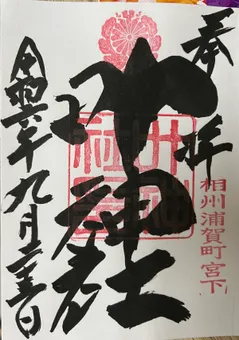 奉拝
相州浦賀町宮下
叶神社
令和六年九月二十三日